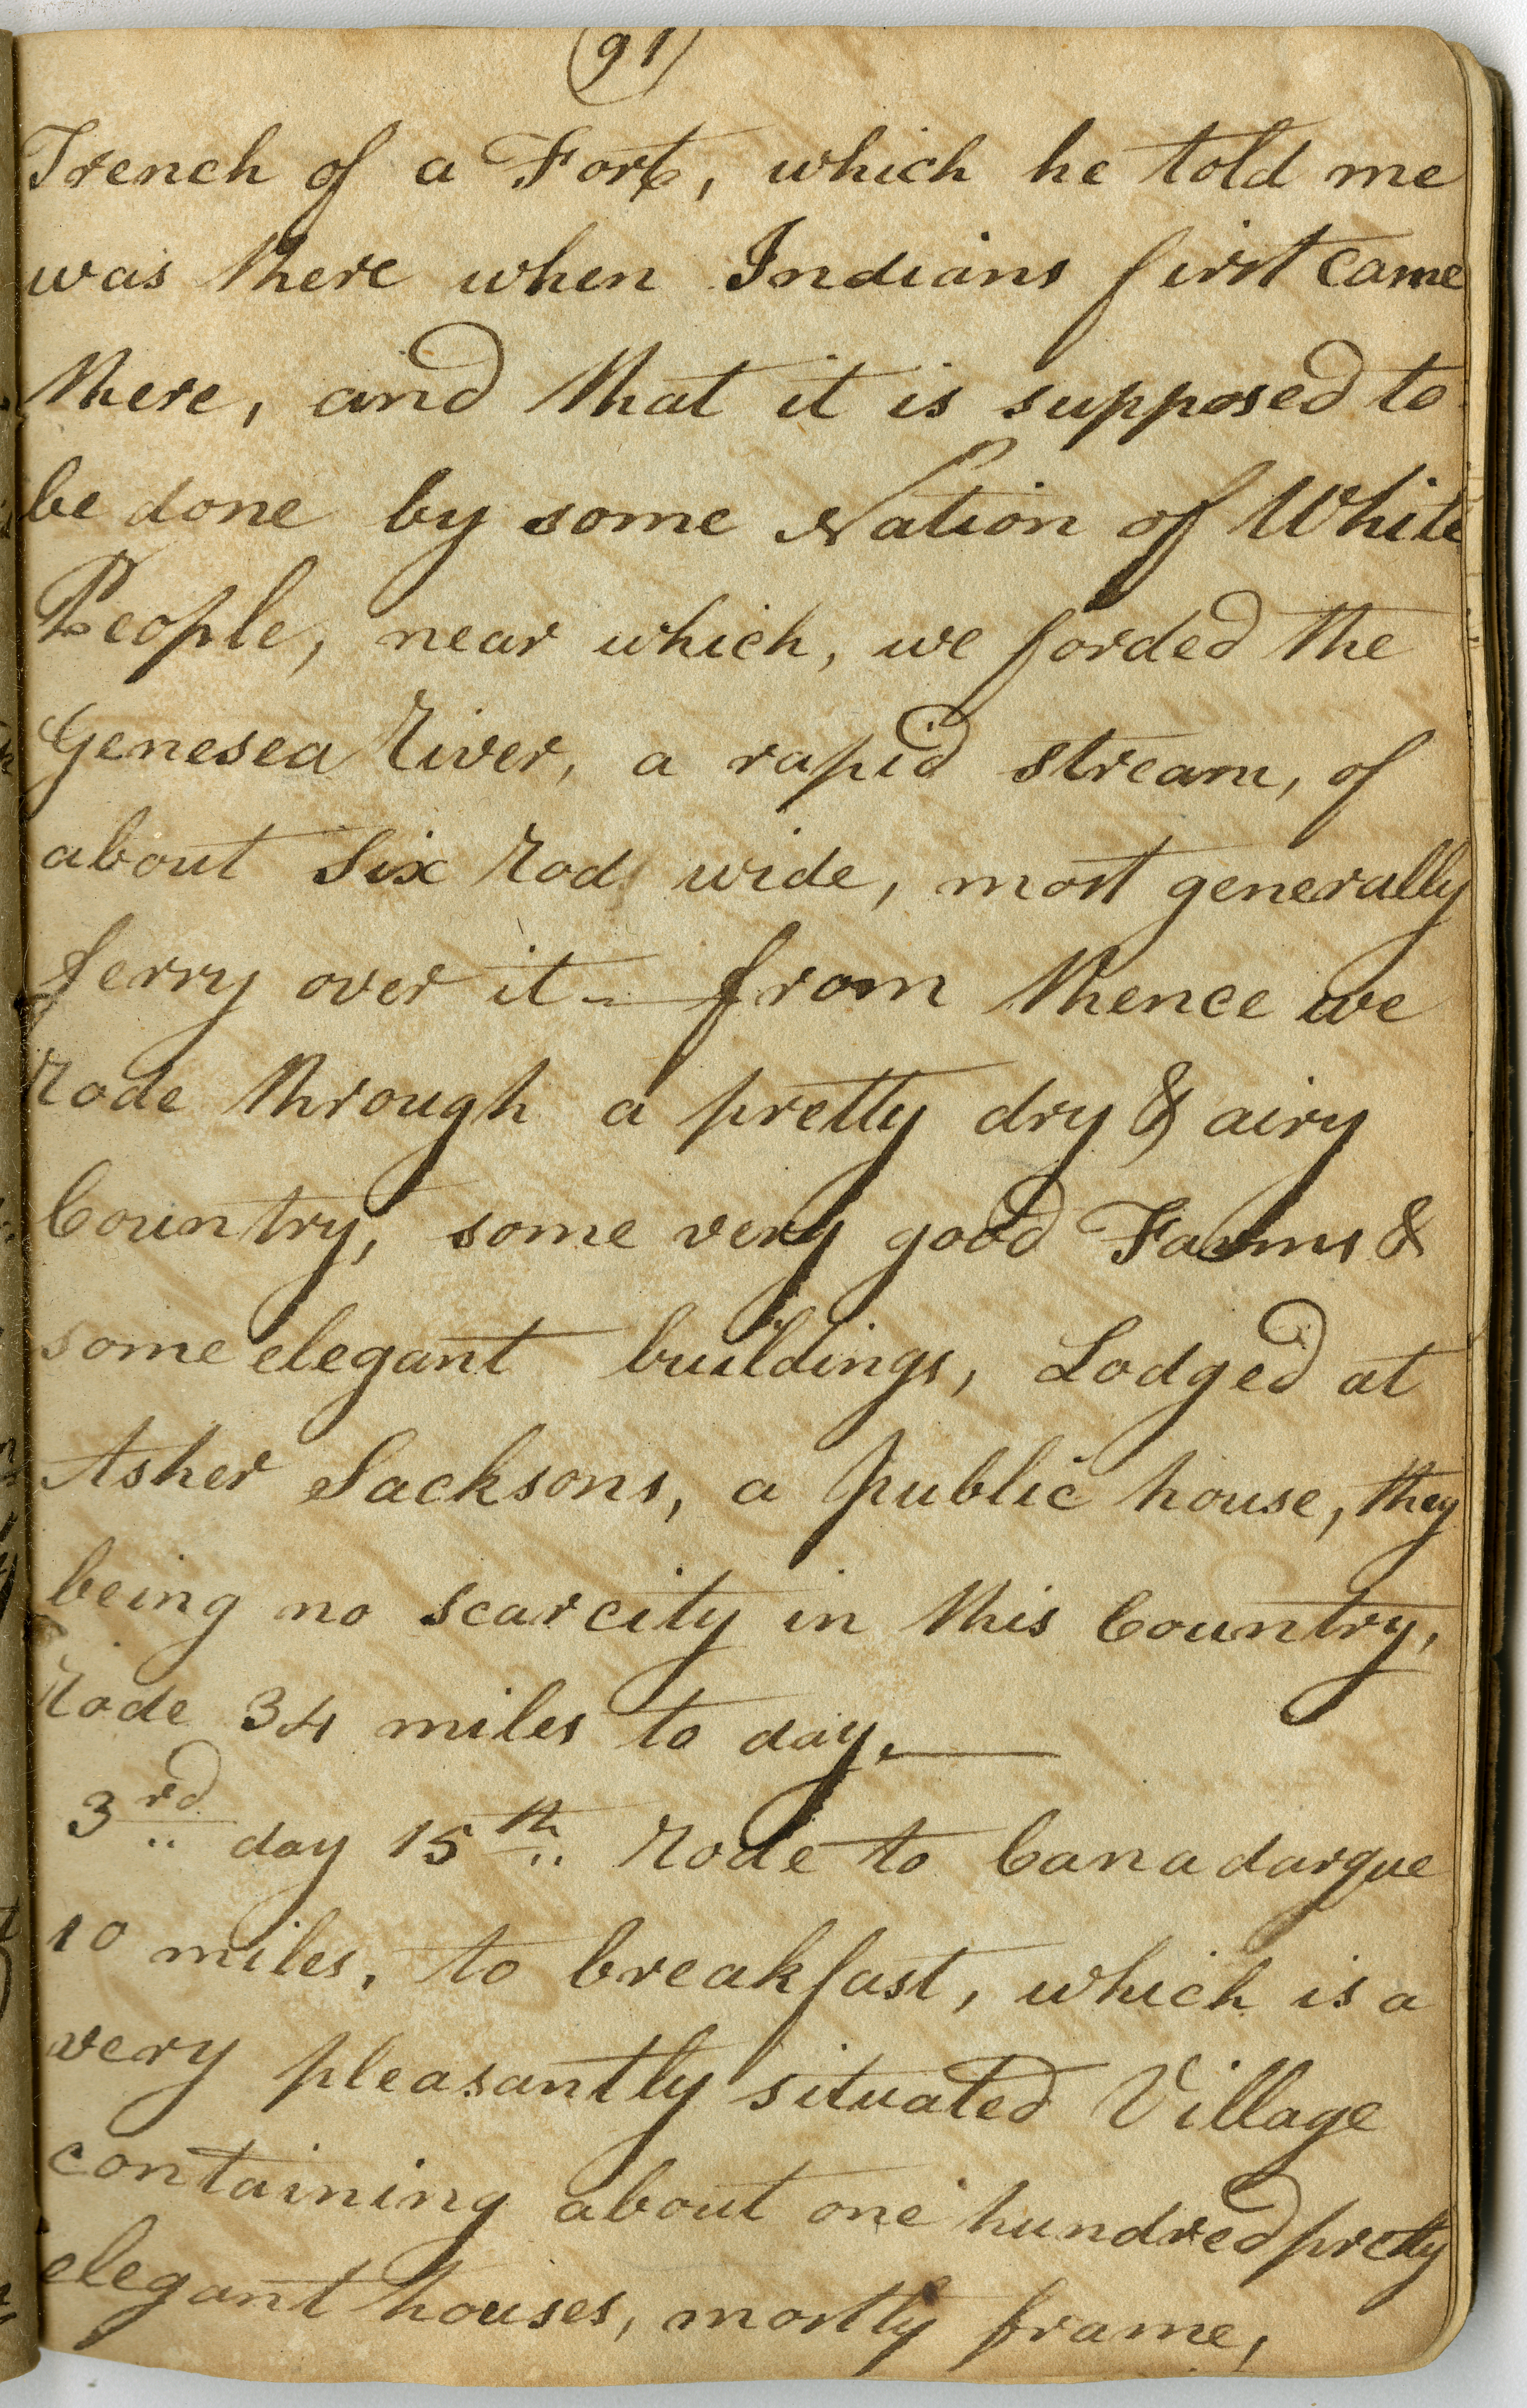 (91)
Trench of a Fort, which he told me
was there when Indians first came
there, and that it is supposed to
be done by some Nation of White
People, near which, we forded the
Genesea River, a rapid stream, of
about Six Rods wide, most generally
ferry over it – from thence we
rode through a pretty dry & airy
Country, some very good Farms &
some elegant buildings, Lodged at
Asher Sacksons, a public house, they
being no scarcity in this Country,
rode 34 miles to day.
3rd day 15th rode to Canadarque
10 miles, to breakfast, which is a
very pleasantly situated Village
containing about one hundred pretty
elegant houses, mostly frame,